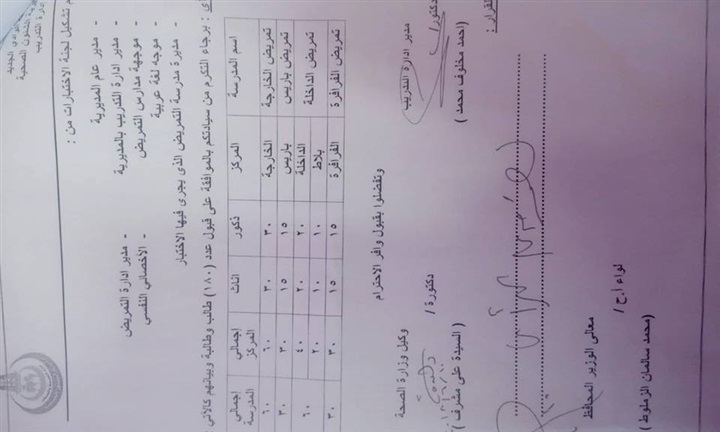 الوادي الجديد
الشئون الصحية
إدارة التدريب
تم تشكيل لجنة الاختبارات من :
- مدير عام المديرية
- مدير ادارة التدريب بالمديرية - مدير ادارة التمريض
- موجهة مدارس التمريض - الأخصائي النفسي
- موجه لغة عربية
- مديرة مدرسة التمريض الذى يجرى فيها الاختبار
: برجاء التكرم من سيادتكم بالموافقة على قبول عدد (١٨٠) طالب وطالبة وبيانهم كالآتي
اسم المدرسة المركز ذكور اناث إجمالي المركز إجمالي المدرسة
تمريض الخارجة الخارجة ٣٠ ٣٠ ٦٠ ٦٠
تمريض باريس باريس ١٥ ١٥ ٣٠ ٣٠
تمريض الداخلة الداخلة ٢٠ ٢٠ ٤٠ ٦٠
بلاط ١٠ ١٠ ٢٠
تمريض الفرافرة الفرافرة ١٥ ١٥ ٣٠ ٣٠
وتفضلوا بقبول وافر الاحترام
مدير ادارة التدريب وكيل وزارة الصحة
دكتور/ دكتورة /
( احمد مخلوف محمد ) ( السيدة على مشرف )
القرار :
معالى الوزير المحافظ
لواء ا.ح /
( محمد سالمان الزملوط )